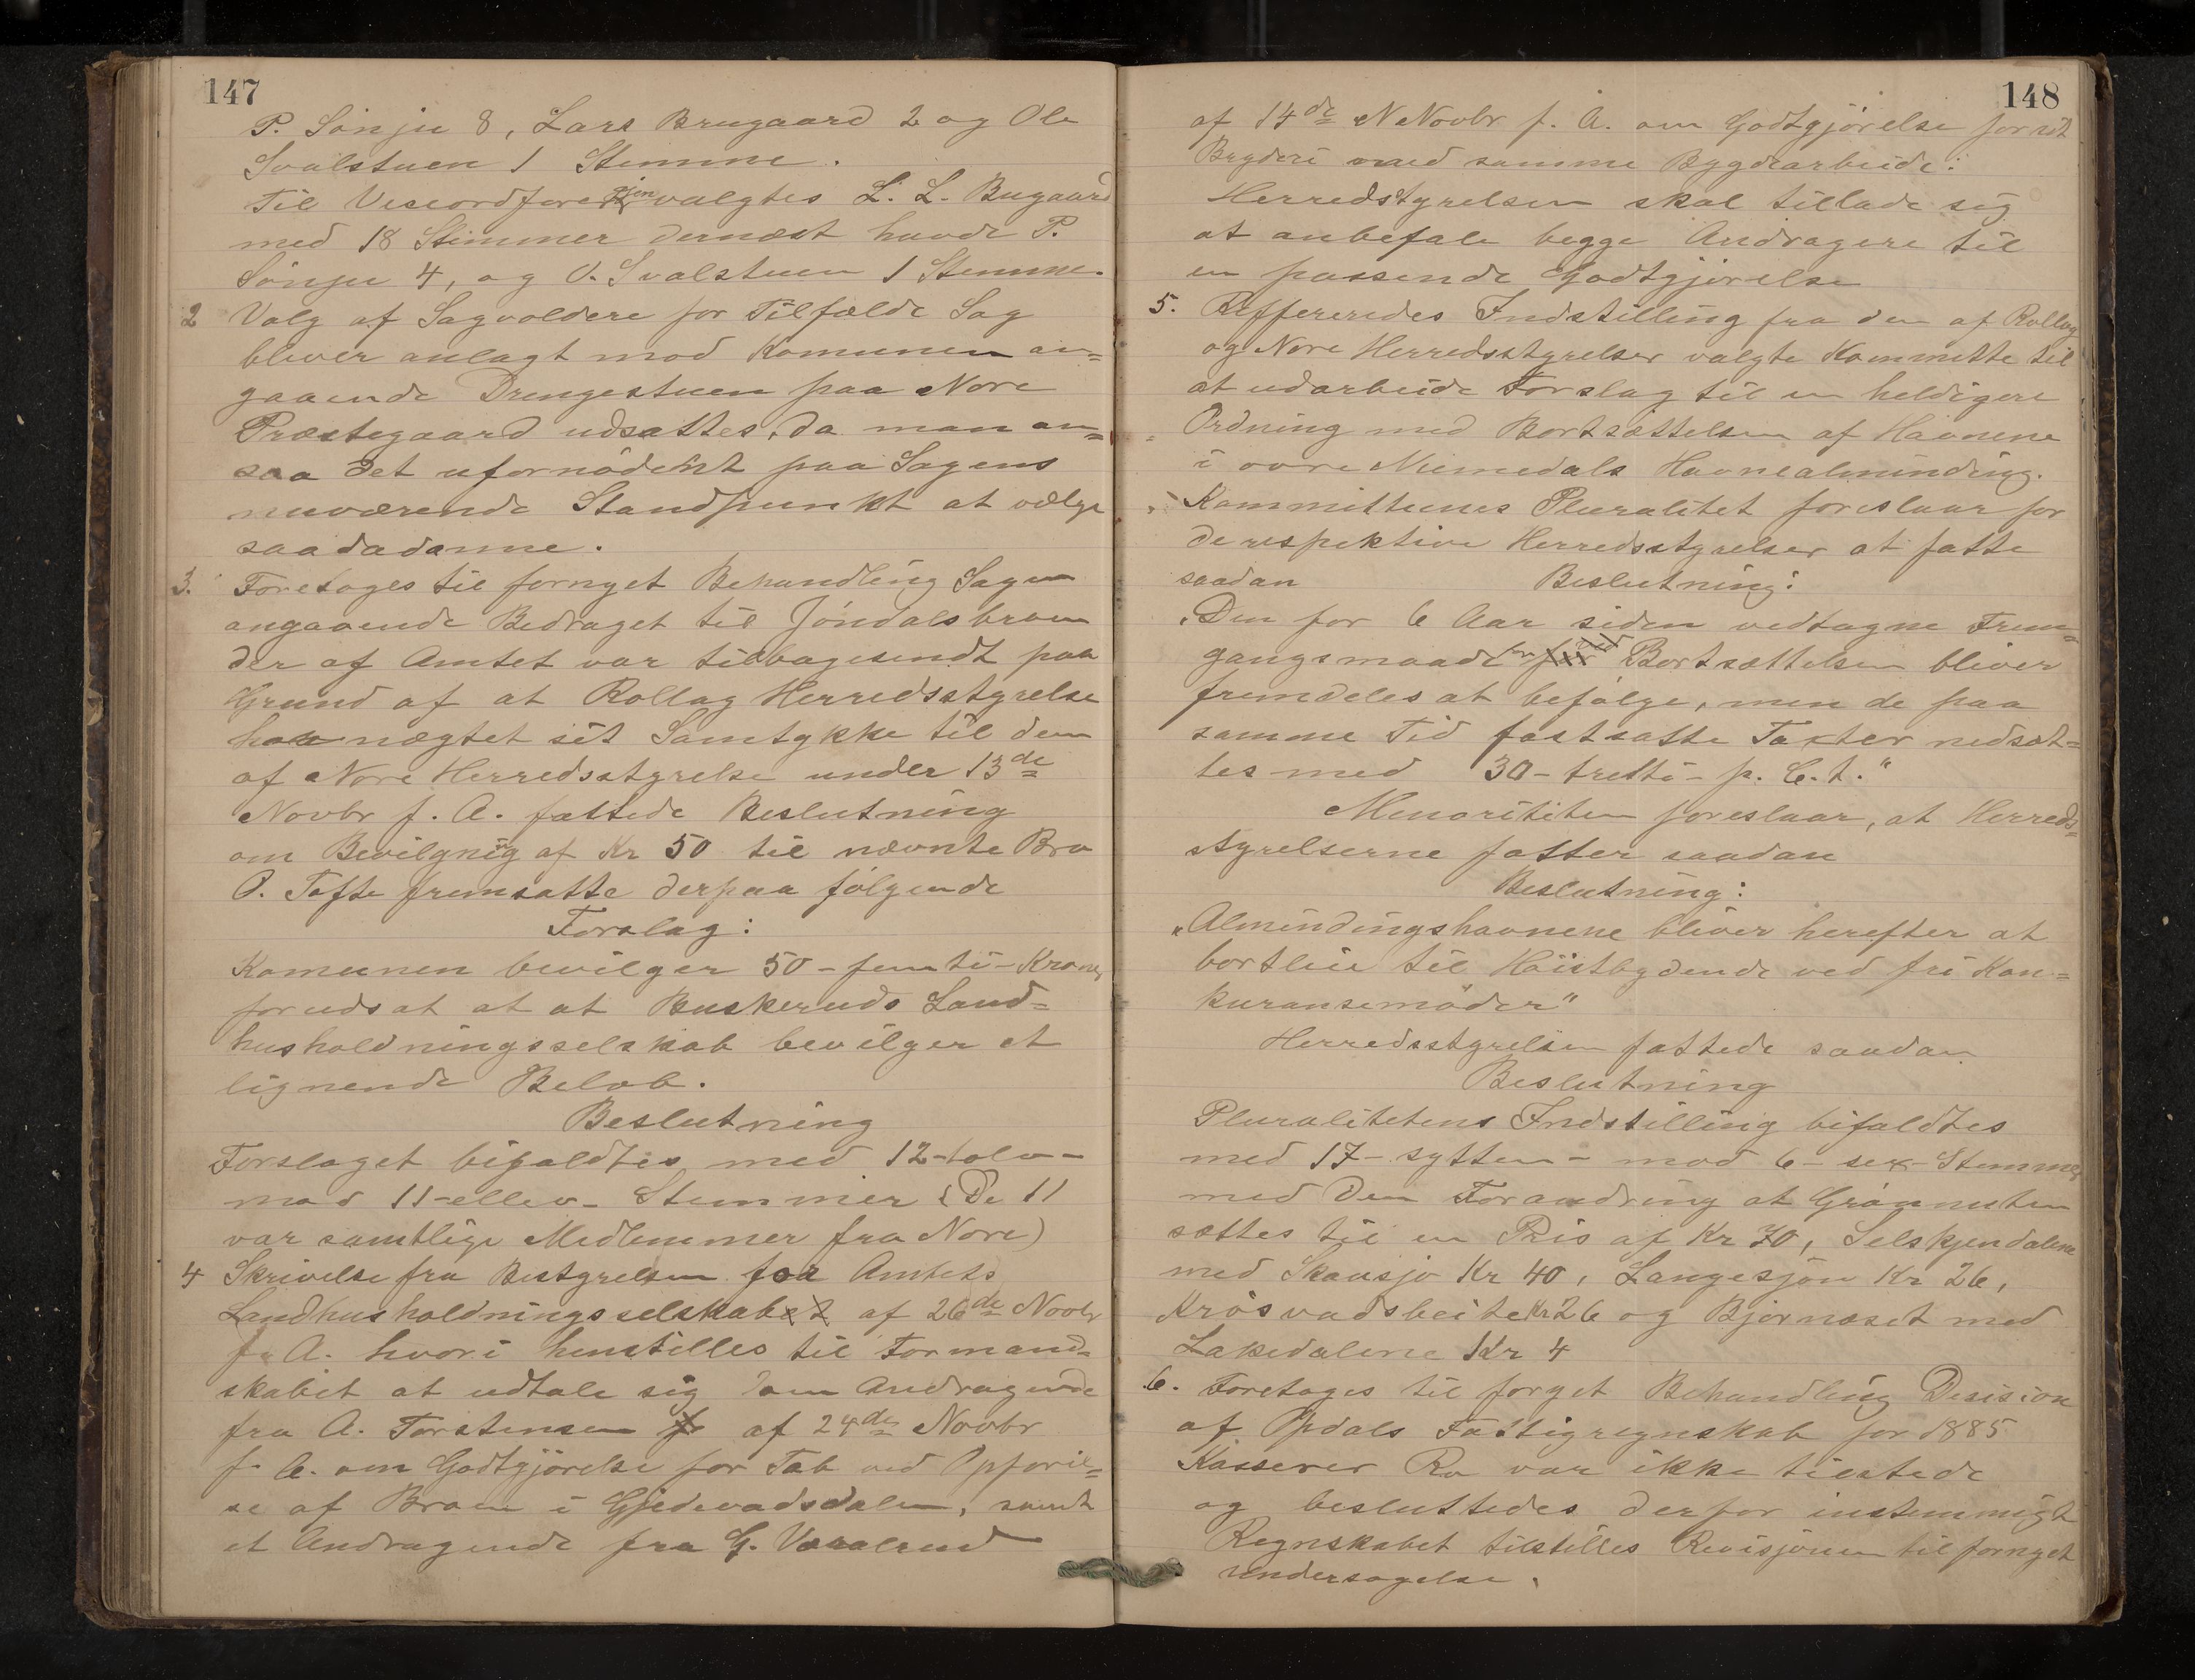 147
P. Sönju 8, Lars Brugaard 2 og Ole
Svalstuen 1 Stemme.
Til Viseordfører igjen valgtes L. L. Bugaard
med 18 Stemmer dernæst havde P.
Sönju 4, og O. Svalstuen 1 Stemme.
2 Valg af Sagvoldere for Tilfælde Sag
bliver anlagt mod Komunen an=
gaaende Drengestuen paa Nore
Præstegaard udsattes, da man an=
saa det ufornödent paa Sagens
nuværende Standpunkt at vælge
saadadanne.
3. Foretoges til fornyet Behandling Sagen
angaaende Bedraget til Jöndalsbroen
der af Amtet var tilbagesendt paa
Grund af at Rollag Herredsstyrelse
har nægtet sit Samtykke til den
af Nore Herredsstyrelse under 13de
Novbr f. A. fattede Beslutning
om Bevilgnig af Kr 50 til nævnte Bro
O. Tofte fremsatte derpaa fölgende
Forslag:
Komunen bevilger 50 - femti - Kroner
forudsat at at Buskeruds Land=
husholdningsselskab bevilger et
lignende Belöb.
Beslutning
Forslaget bifaldtes med 12 - tolv -
mod 11 - ellev - Stemmer (De 11
var samtlige Medlemmer fra Nore)
4 Skrivelse fra Bestyrelsen for Amtets
Landhusholdningsselskabet af 26de Novbr
f. A. hvori henstilles til Formand=
skabet at udtale sig om Andragende
fra A. Torstensen af 24de Novbr
f. A. om Godtgjörelse for Tab ved Opförel=
se af Broen i Gjedevadsdalen, samt
et Andragende fra G.
148
af 14de Novbr f. A. om Godtgjörelse for sit
Bryderi med samme Bygdearbeide:
Herredstyrelsen skal tillade sig
at anbefale begge Andragere til
en passende Godtgjörelse
5. Refereredes Indstilling fra den af Rollag
og Nore Herredsstyrelser valgte Kommitte til
at udarbeide Forslag til en heldigere
Ordning med Bortsættelsen af Havnene
i övre Numedals Havnealminding.
Kommitteenes Pluralitet foreslaar for
de respektive Herredsstyrelser at fatte
saadan Beslutning:
"Den for 6 Aar siden vedtagne Frem=
gangsmaade for Bortsættelsen bliver
fremdeles at befölge, men de paa
samme Tid fastsatte Taxter nedsæt=
tes med 30 - tretti - p. C.t."
Menoriteten foreslaar, at Herreds=
styrelserne fatter saadan
Beslutning:
"Almindingshavnene bliver herefter at
bortleie til Höistbydende ved fri Kon=
kuransemöder"
Herredsstyrelsen fattede saadan
Beslutning
Pluralitetens Indstilling bifaldtes
med 17 - sytten - mod 6 - sex - Stemmer
med den Forandring at Grönnuten
sættes til en Pris af Kr 70, Selskjendalene
med Skausjö Kr 40, Langesjöen Kr 26,
Krösvadsbeite Kr 26 og Björnæset med
Lakedalene Kr 4
6. Foretoges til forget Behandling Desision
af Opdals Fattigregnskab for 1885
Kasserer Ro var ikke tilstede
og besluttedes derfor enstemmigt
Regnskabet tilstilles Revisjonen til fornyet
undersøgelse.